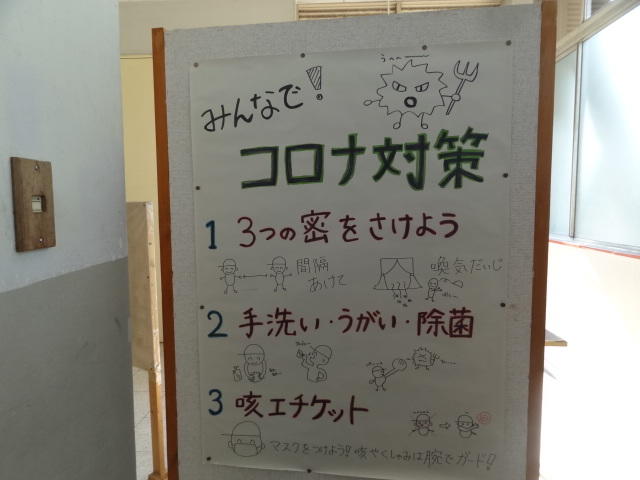 みんなで!
うへへ
コロナ対策
1 3つの密をさけよう
間隔あけて
換気だいじ
2 手洗い・うがい・除菌
3 咳エチケット
マスクをつけよう!咳やくしゃみは腕でガード!